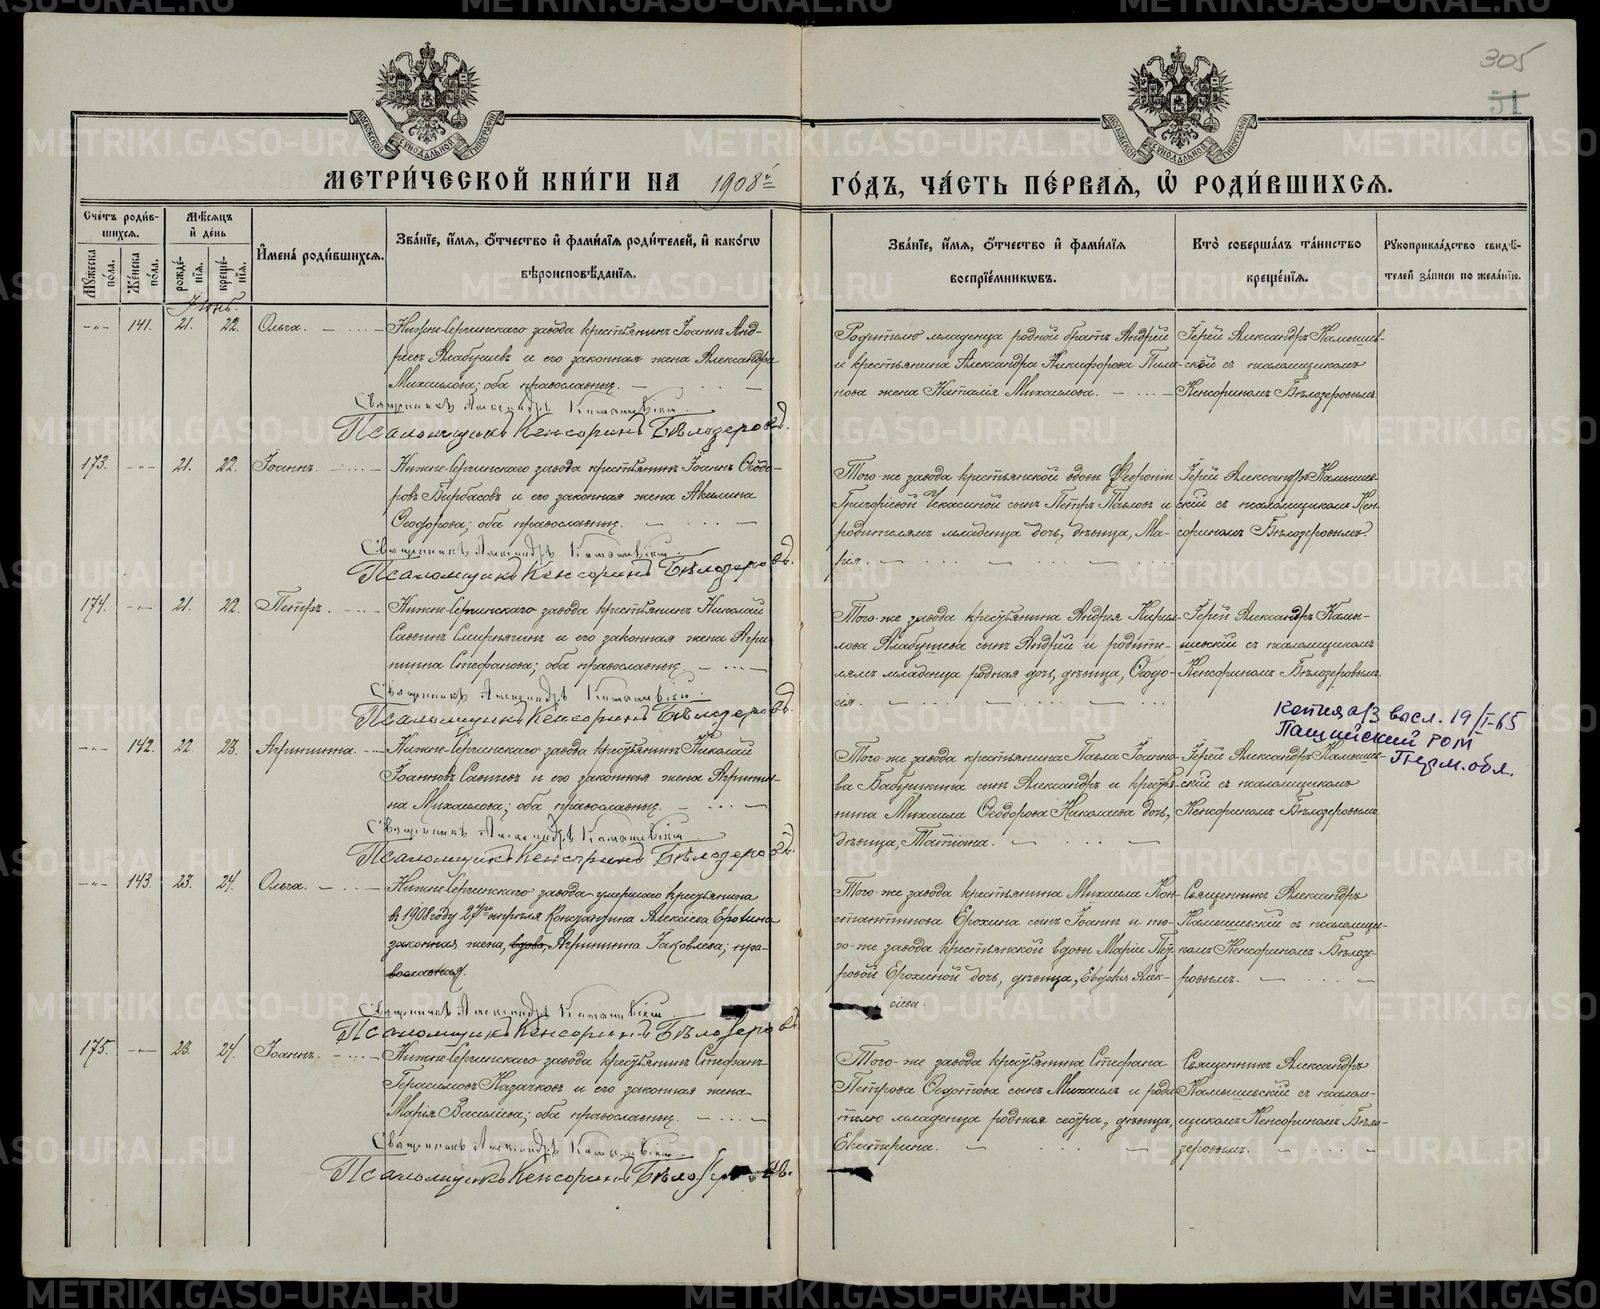 305
51
МОСКОВСКОЙ СѴНОДАЛЬНОЙ ТИПОГРАФІИ
МОСКОВСКОЙ СѴНОДАЛЬНОЙ ТИПОГРАФІИ
МЕТРИ́ЧЕСКОЙ КНИ́ГИ НА 1908й ГО́ДЪ, ЧА́СТЬ ПЕ́РВАѦ, Ѡ҆ РОДИ́ВШИХСѦ.
Сче́тъ роди́вшихсѧ.
Мꙋ́жеска по́ла.
Же́нска по́ла.
Мѣ́сѧцъ и҆ де́нь
рожде́нїѧ.
креще́нїѧ.
И҆мена̀ роди́вшихсѧ.
Зва́нїе, и҆́мѧ, ѻ҆́тчество и҆ фами́лїѧ роди́телей, и҆ како́гѡ вѣроисповѣ́данїѧ.
Зва́нїе, и҆́мѧ, ѻ҆́тчество и҆ фами́лїѧ воспрїе́мникѡвъ.
Кто̀ соверша́лъ та́инство креще́нїѧ.
Рꙋкоприкла́дство свидѣ́телей за́писи по жела́нїю.
Іюнь.
-"- 141. 21. 22. Ольга.
Нижне-Сергинскаго завода крестьянинъ Іоаннъ Анд-
реевъ Алабушевъ и его законная жена Александра
Михаилова; оба православные.
Священникъ Александръ Камышевскій.
Псаломщикъ Кенсоринъ Бѣлозеровъ.
Родителю младенца родной братъ Андрей
и крестьянина Александра Никифорова
жена Наталія Михаилова.
Іерей Александръ Камышев-
скій съ псаломщикомъ
Кенсориномъ Бѣлозеровымъ.
173. -"- 21. 22. Іоаннъ.
Нижне-Сергинскаго завода крестьянинъ Іоаннъ Ѳедо-
ровъ Бирбасовъ и его законная жена Акилина
Ѳеодорова; оба православные.
Священникъ Александръ Камышевскій.
Псаломщикъ Кенсоринъ Бѣлозеровъ.
Того-же завода крестьянской вдовы Февроніи
Григорьевой Чекасиной сынъ Петръ Павловъ и
родителямъ младенца дочь, дѣвица, Ма-
рія.
Іерей Александръ Камышев-
скій съ псаломщикомъ Кен-
сориномъ Бѣлозеровымъ.
174. -"- 21. 22. Петръ.
Нижне-Сергинскаго завода крестьянинъ Николай
Саввинъ Смирнягинъ и его законная жена Агри-
пина Стефанова; оба православные.
Священникъ Александръ Камышевскій.
Псаломщикъ Кенсоринъ Бѣлозеровъ.
Того-же завода крестьянина Андрея Кирил-
лова Алабушева сынъ Андрей и родите-
лямъ младенца родная дочь, дѣвица, Ѳеодо-
сія.
Іерей Александръ Камы-
шевскій съ псаломщикомъ
Кенсориномъ Бѣлозеровымъ.
Копия а/з высл. 19/I-65
Пашийский РОМ
Перм. обл.
-"- 142. 22. 23. Агрипина.
Нижне-Сергинскаго завода крестьянинъ Николай
Іоанновъ и его законная жена Агрипи-
на Михаилова; оба православные.
Священникъ Александръ Камышевскій.
Псаломщикъ Кенсоринъ Бѣлозеровъ.
Того-же завода крестьянина Павла Іоанно-
ва Бабушкина сынъ Александръ и крестья-
нина Михаила Ѳеодорова Николаева дочь,
дѣвица, Татіана.
Іерей Александръ Камышев-
скій съ псаломщикомъ
Кенсориномъ Бѣлозеровымъ.
-"- 143. 23. 24. Ольга.
Нижне-Сергинскаго завода умершаго крестьянина
въ 1908 году 27го апрѣля Константина Алексіева Ерохина
законная жена, вдова, Агрипина Іаковлева; пра-
вославная.
Священникъ Александръ Камышевскій.
Псаломщикъ Кенсоринъ Бѣлозеровъ.
Того-же завода крестьянина Михаила Кон-
стантинова Ерохина сынъ Іоаннъ и то-
го-же завода крестьянской вдовы Маріи Пет-
ровой Ерохиной дочь, дѣвица, Евдокія Алек-
сіева.
Священникъ Александръ
Камышевскій съ псаломщи-
комъ Кенсориномъ Бѣлозе-
ровымъ.
175. -"- 23. 24. Іоаннъ.
Нижне-Сергинскаго завода крестьянинъ Стефанъ
Герасимовъ Казачковъ и его законная жена
Марія Василіева; оба православные.
Священникъ Александръ Камышевскій.
Псаломщикъ Кенсоринъ Бѣлозеровъ.
Того-же завода крестьянина Стефана
Петрова Ѳедотова сынъ Михаилъ и роди-
телю младенца родная сестра, дѣвица,
Екатерина.
Священникъ Александръ
Камышевскій съ псалом-
щикомъ Кенсориномъ Бѣло-
зеровымъ.
METRIKI.GASO-URAL.RU